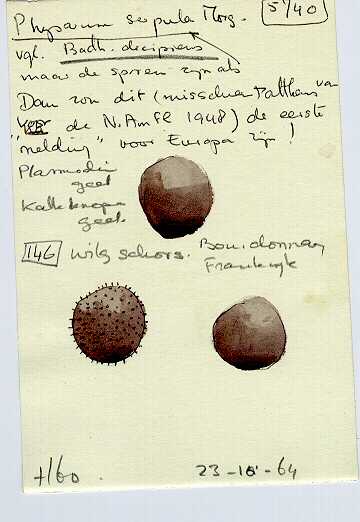 Physarum serpula Morg. 5140
vgl. Badh. decipiens
maar de sporen zijn als
Dan zou dit (misschien Patthens van
de N.Am Fl 1948) de eerste
"melding" voor Europa zijn!
Plasmodium
geel
Kalkknopen
geel.
146 wilg schors. Bourdonnay
Frankrijk
+/60. 23-10-64